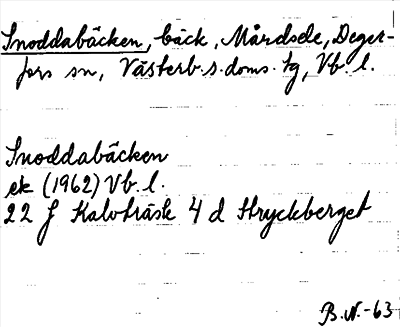 Snoddabäcken, bäck, Mårdsele, Deger-
fors sn, Västerb. s. doms. tg, Vb. l.
Snoddabäcken
ek (1962) Vb. l.
22 J Kalvträsk 4 d Stryckberget
B.N.-63